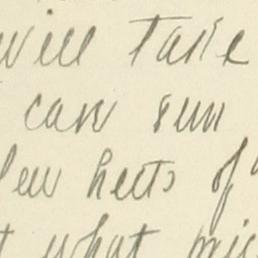 will take
can run
few hects of
what